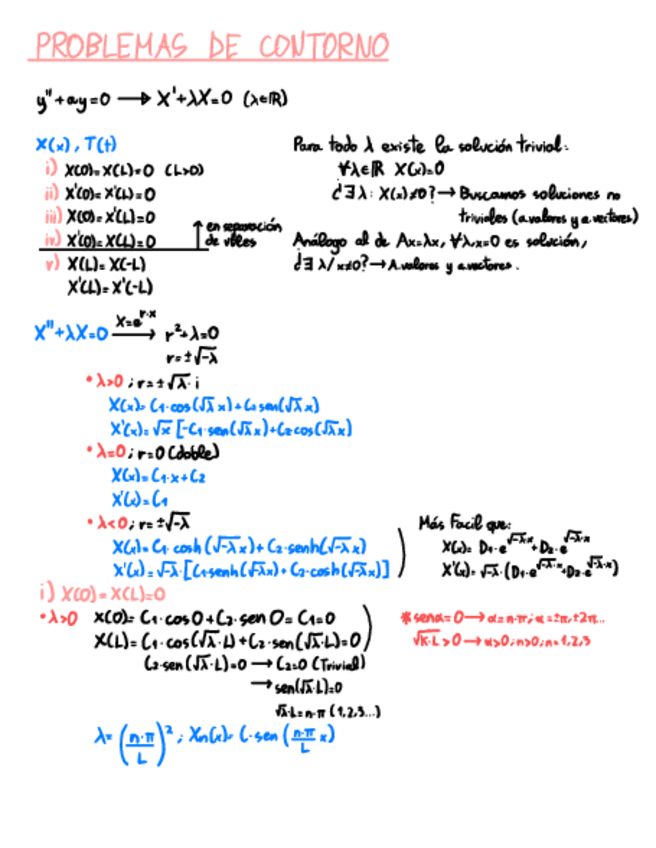 PROBLEMAS DE CONTORNO
y''+ay=0 → X'+λX=0 (λ∈ℝ)
X(x), T(t)
i) X(0)=X(L)=0 (L>0)
ii) X'(0)=X'(L)=0
iii) X(0)=X'(L)=0
iv) X'(0)=X(L)=0
↑ en separación
de vbles
v) X(L)=X(-L)
X'(L)=X'(-L)
Para todo λ existe la solución trivial:
∀λ∈ℝ X(x)=0
¿∃λ: X(x)≠0? → Buscamos soluciones no
triviales (a.valores y a.vectores)
Análogo al de Ax=λx, ∀λ,x=0 es solución,
¿∃ λ/x≠0? → A.valores y a.vectores.
X''+λX=0 X=e^{r·x} → r²+λ=0
r=±√-λ
• λ>0; r=±√λ·i
X(x)=C₁·cos(√λx)+C₂sen(√λx)
X'(x)=√x[-C₁·sen(√λx)+C₂cos(√λx)]
• λ=0; r=0 (doble)
X(x)=C₁·x+C₂
X'(x)=C₁
• λ<0; r=±√-λ
X(x)=C₁·cosh(√-λx)+C₂·senh(√-λx)
X'(x)=√-λ·[C₁senh(√-λx)+C₂·cosh(√-λx)]
Más Facil que:
X(x)=D₁·e^{√-λ·x}+D₂·e^{√-λ·x}
X'(x)=√-λ·(D₁·e^{√-λ·x}+D₂·e^{√-λ·x})
i) X(0)=X(L)=0
• λ>0 X(0)=C₁·cos0+C₂·sen0=C₁=0
X(L)=C₁·cos(√λ·L)+C₂·sen(√λ·L)=0
C₂·sen(√λ·L)=0 → C₂=0 (Trivial)
→ sen(√λ·L)=0
√λ·L=n·π (1,2,3...)
* senα=0 → α=n·π; α=±π,±2π...
√K·L>0 → α>0; n>0; n=1,2,3
λ=(n·π/L)²; Xn(x)=C·sen(n·π/L x)